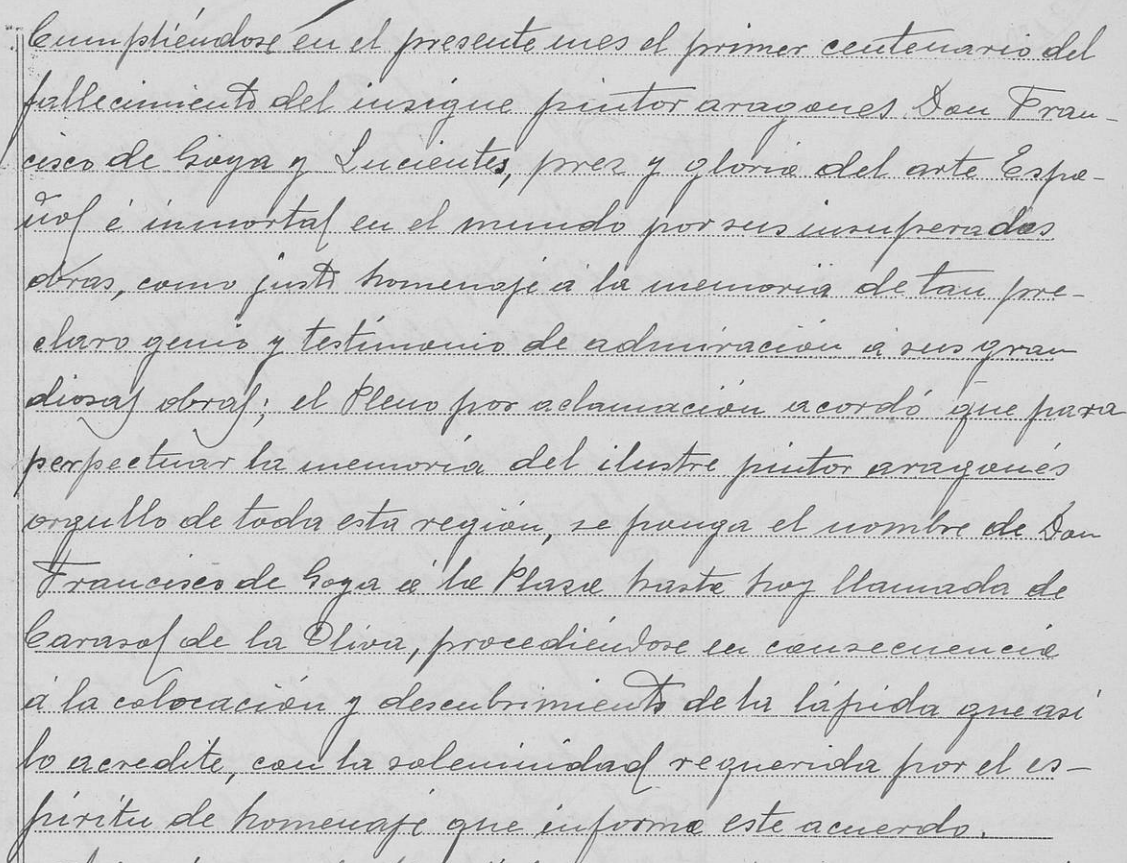 Cumpliéndose en el presente mes el primer centenario del
fallecimiento del insigne pintor aragones Don Fran-
cisco de Goya y Lucientes, prez y gloria del arte Espa-
ñol é inmortal en el mundo por sus insuperadas
obras, como justo homenaje á la memoria de tan pre-
claro genio y testimonio de admiración á sus gran
diosas obras; el Pleno por aclamación acordó que para
perpectuar la memoria del ilustre pintor aragonés
orgullo de toda esta región, se ponga el nombre de Don
Francisco de Goya á la Plaza hasta hoy llamada de
Carasol de la Oliva, procediéndose en consecuencia
á la colocación y descubrimiento de la lápida que asi
lo acredite, con la solemnidad requerida por el es-
píritu de homenaje que informa este acuerdo.